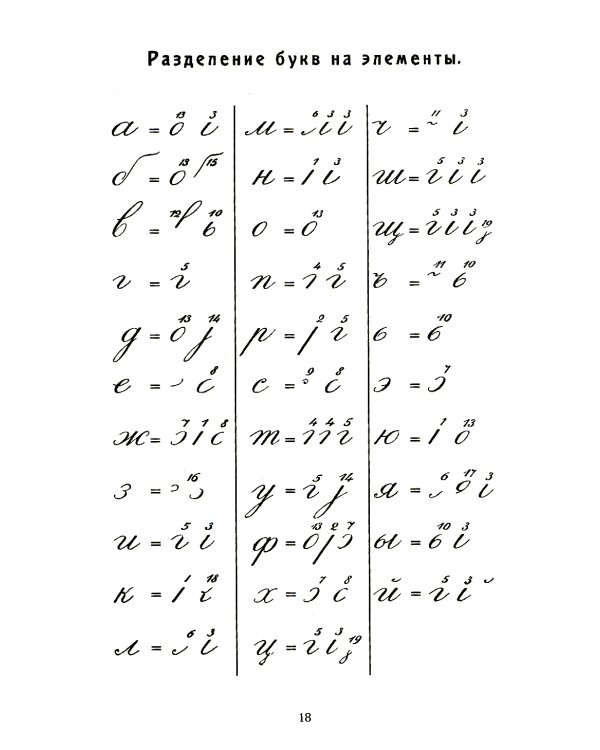 Разделение букв на элементы.
а = 13 3
б = 13 15
в = 12 10
г = 5
д = 13 14
е = 8
ж = 7 1 8
з = 16
и = 5 3
к = 1 18
л = 6 3
м = 6 3 3
н = 1 3
о = 13
п = 4 5
р = 2 5
с = 9 8
т = 4 4 5
у = 5 14
ф = 13 2 7
х = 7 8
ц = 5 3 19
ч = 11 3
ш = 5 3 3
щ = 5 3 3 19
ъ = 11 10
ь = 10
э = 7
ю = 1 13
я = 6 17 3
ы = 10 3
й = 5 3
18